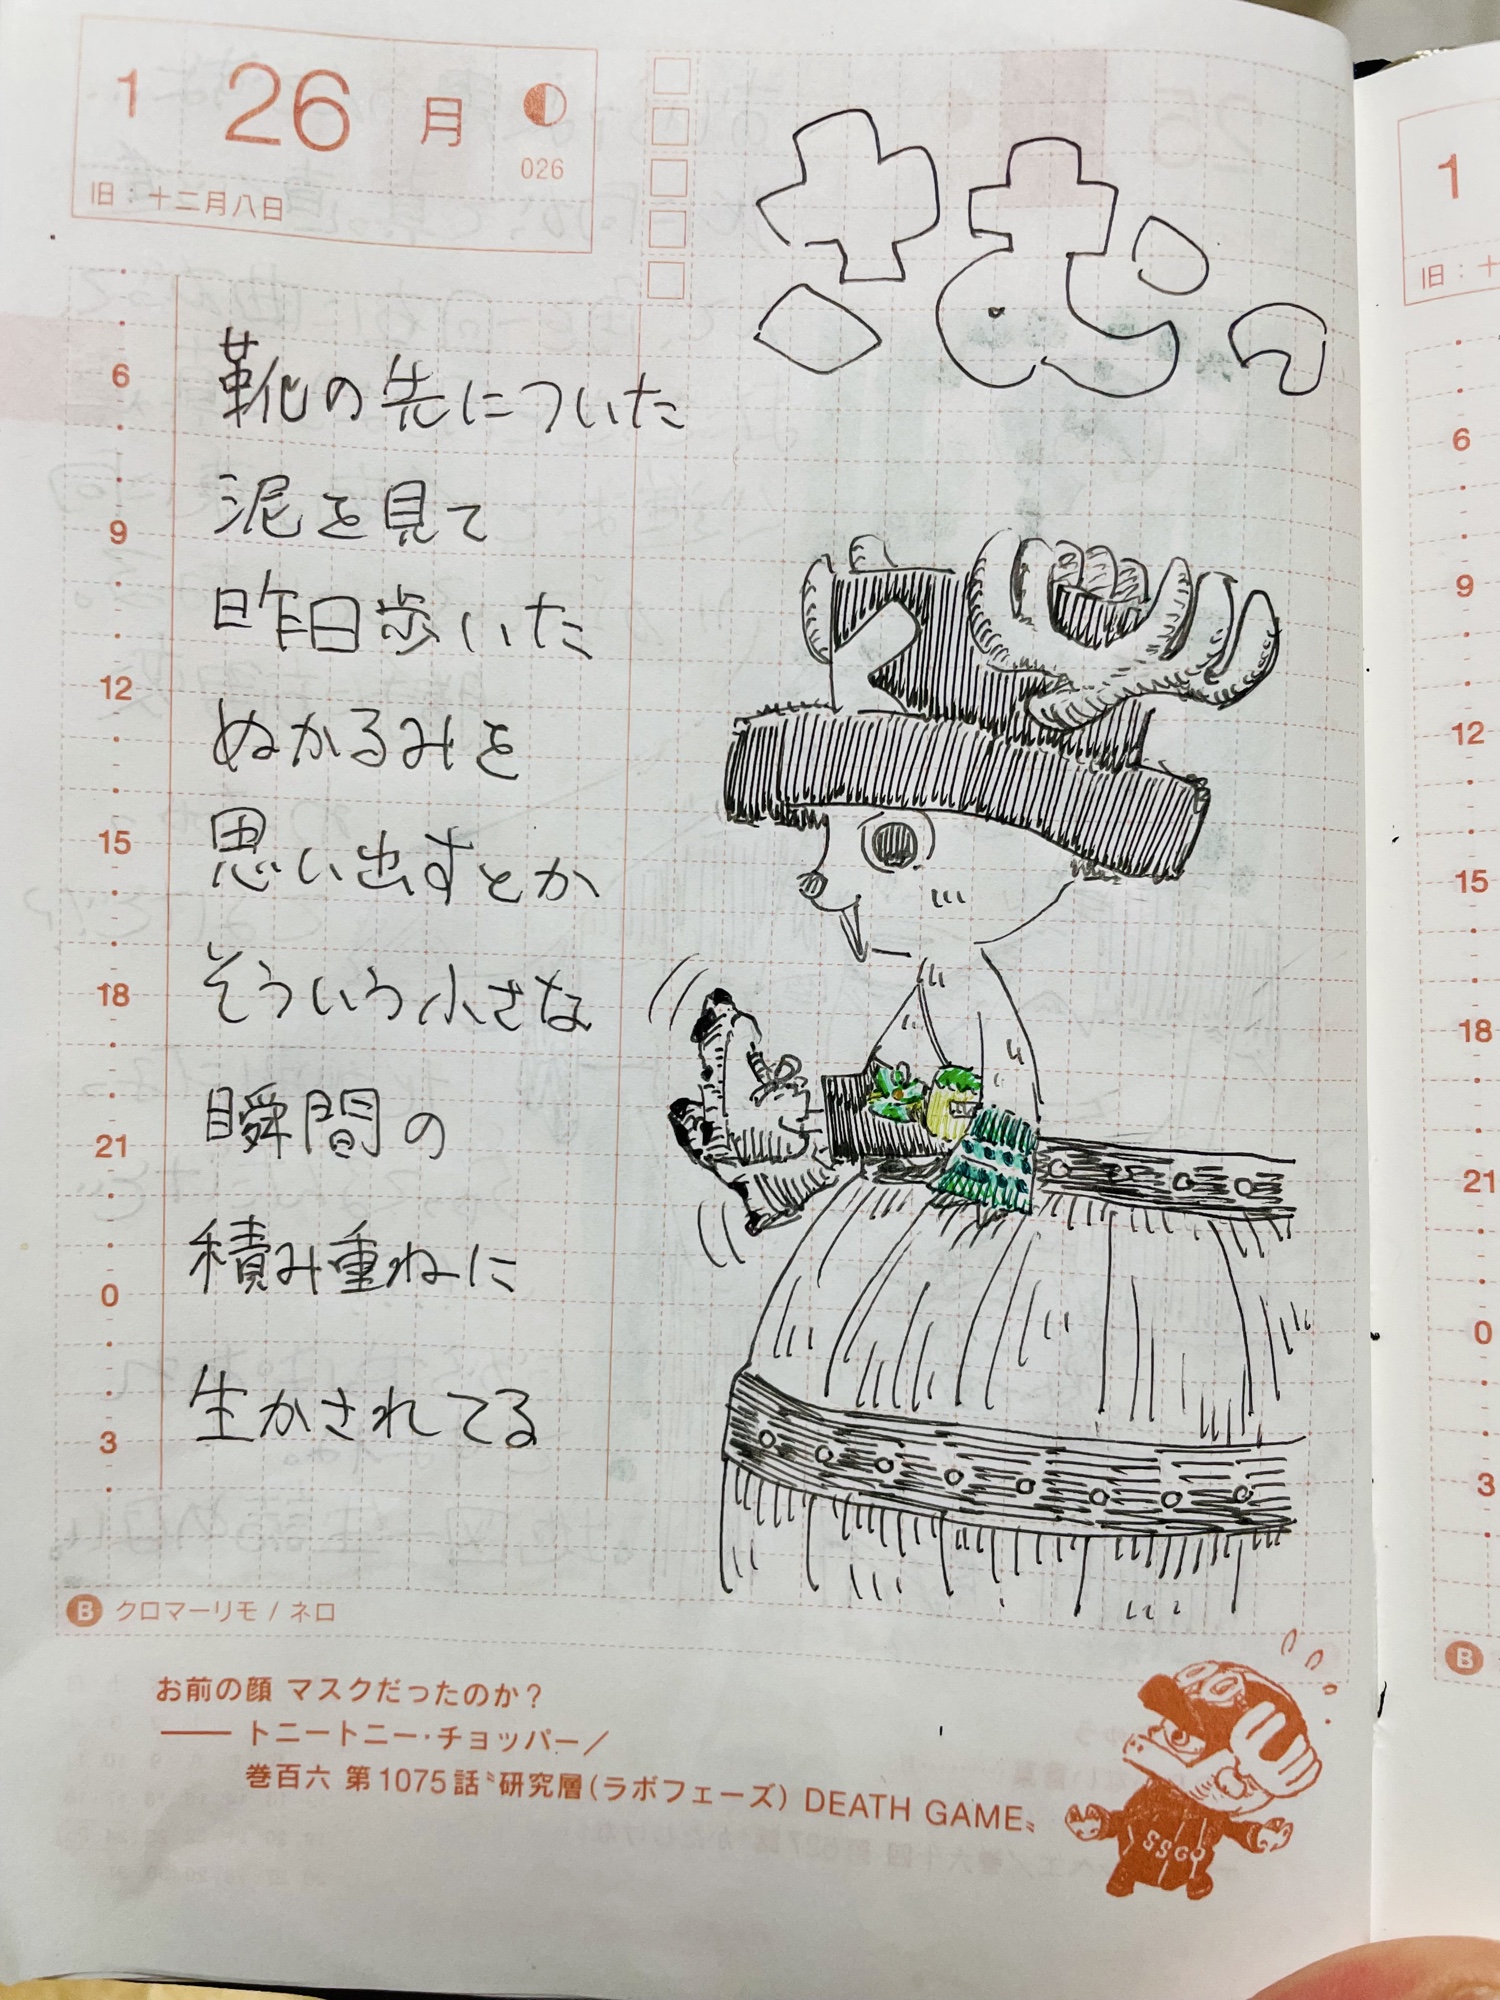 1 26 月
026
旧：十二月八日
さむっ
靴の先についた
泥を見て
昨日歩いた
ぬかるみを
思い出すとか
そういう小さな
瞬間の
積み重ねに
生かされてる
6
9
12
15
18
21
0
3
B クロマーリモ / ネロ
お前の顔 マスクだったのか？
—— トニートニー・チョッパー／
巻百六 第1075話〝研究層（ラボフェーズ）DEATH GAME〟
SSGO
1
旧：十
6
9
12
15
18
21
0
3
B